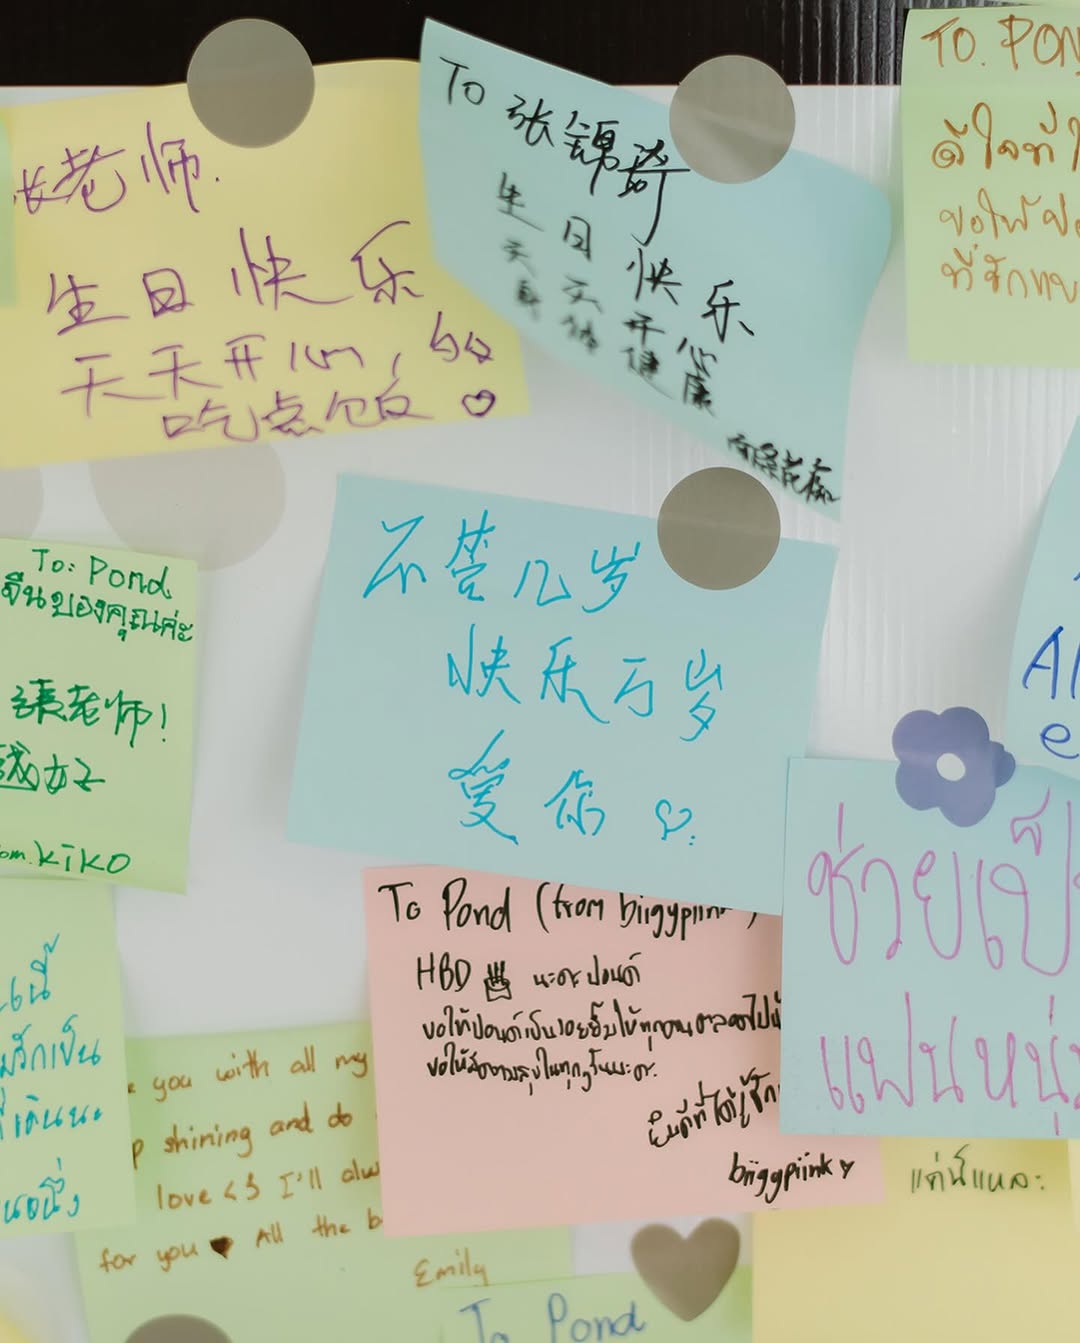 张老师.
生日快乐
天天开心,多多
吃点饭 ♡
To 张锦
生日快乐
天天开心
身体健康
TO. PON
ดีใจที่ไ
ขอให้ป
ที่รักขอ
To: Pond
จีนของคุณค่ะ
張老师!
你好
KIKO
不管几岁
快乐万岁
爱你 ♡
Al
e
ช่วยเป็
แฟนหนุ่
To Pond (from biigypiink)
HBD นะคะ ปอนด์
ขอให้ปอนด์เป็นรอยยิ้มให้ทุกคนตลอดไป
ขอให้มีความสุขในทุกๆวันนะคะ
ยินดีที่ได้รู้จัก
biigypiink
นี้
รักเป็น
ที่เดินนะ
หนึ่ง
you with all my
shining and do
love <3 I'll alw
for you ♥ All the b
Emily
แค่นี้แหละ
To Pond